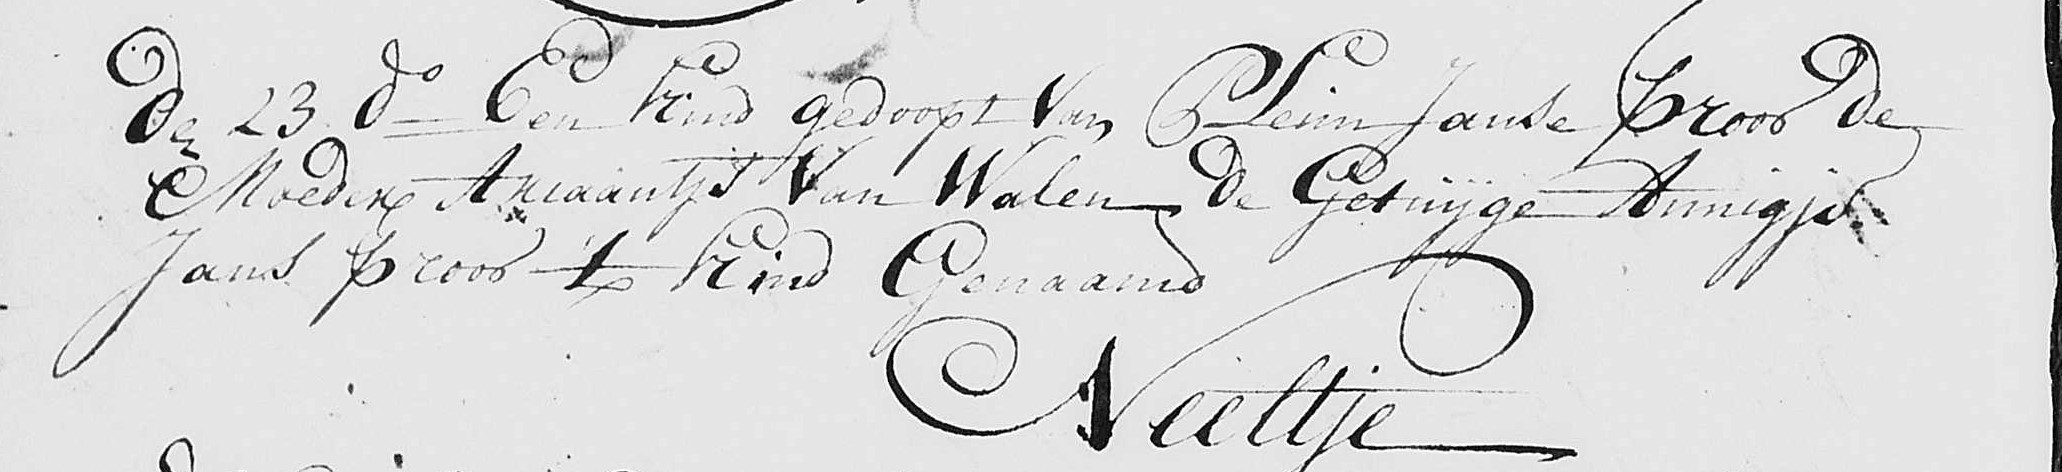 De 23 do Een kind gedoopt van Pleun Janse proos De
Moeder Ariaantje van Walen de Getuyge Annigje
Jans proos 't kind Genaamd
Neeltje